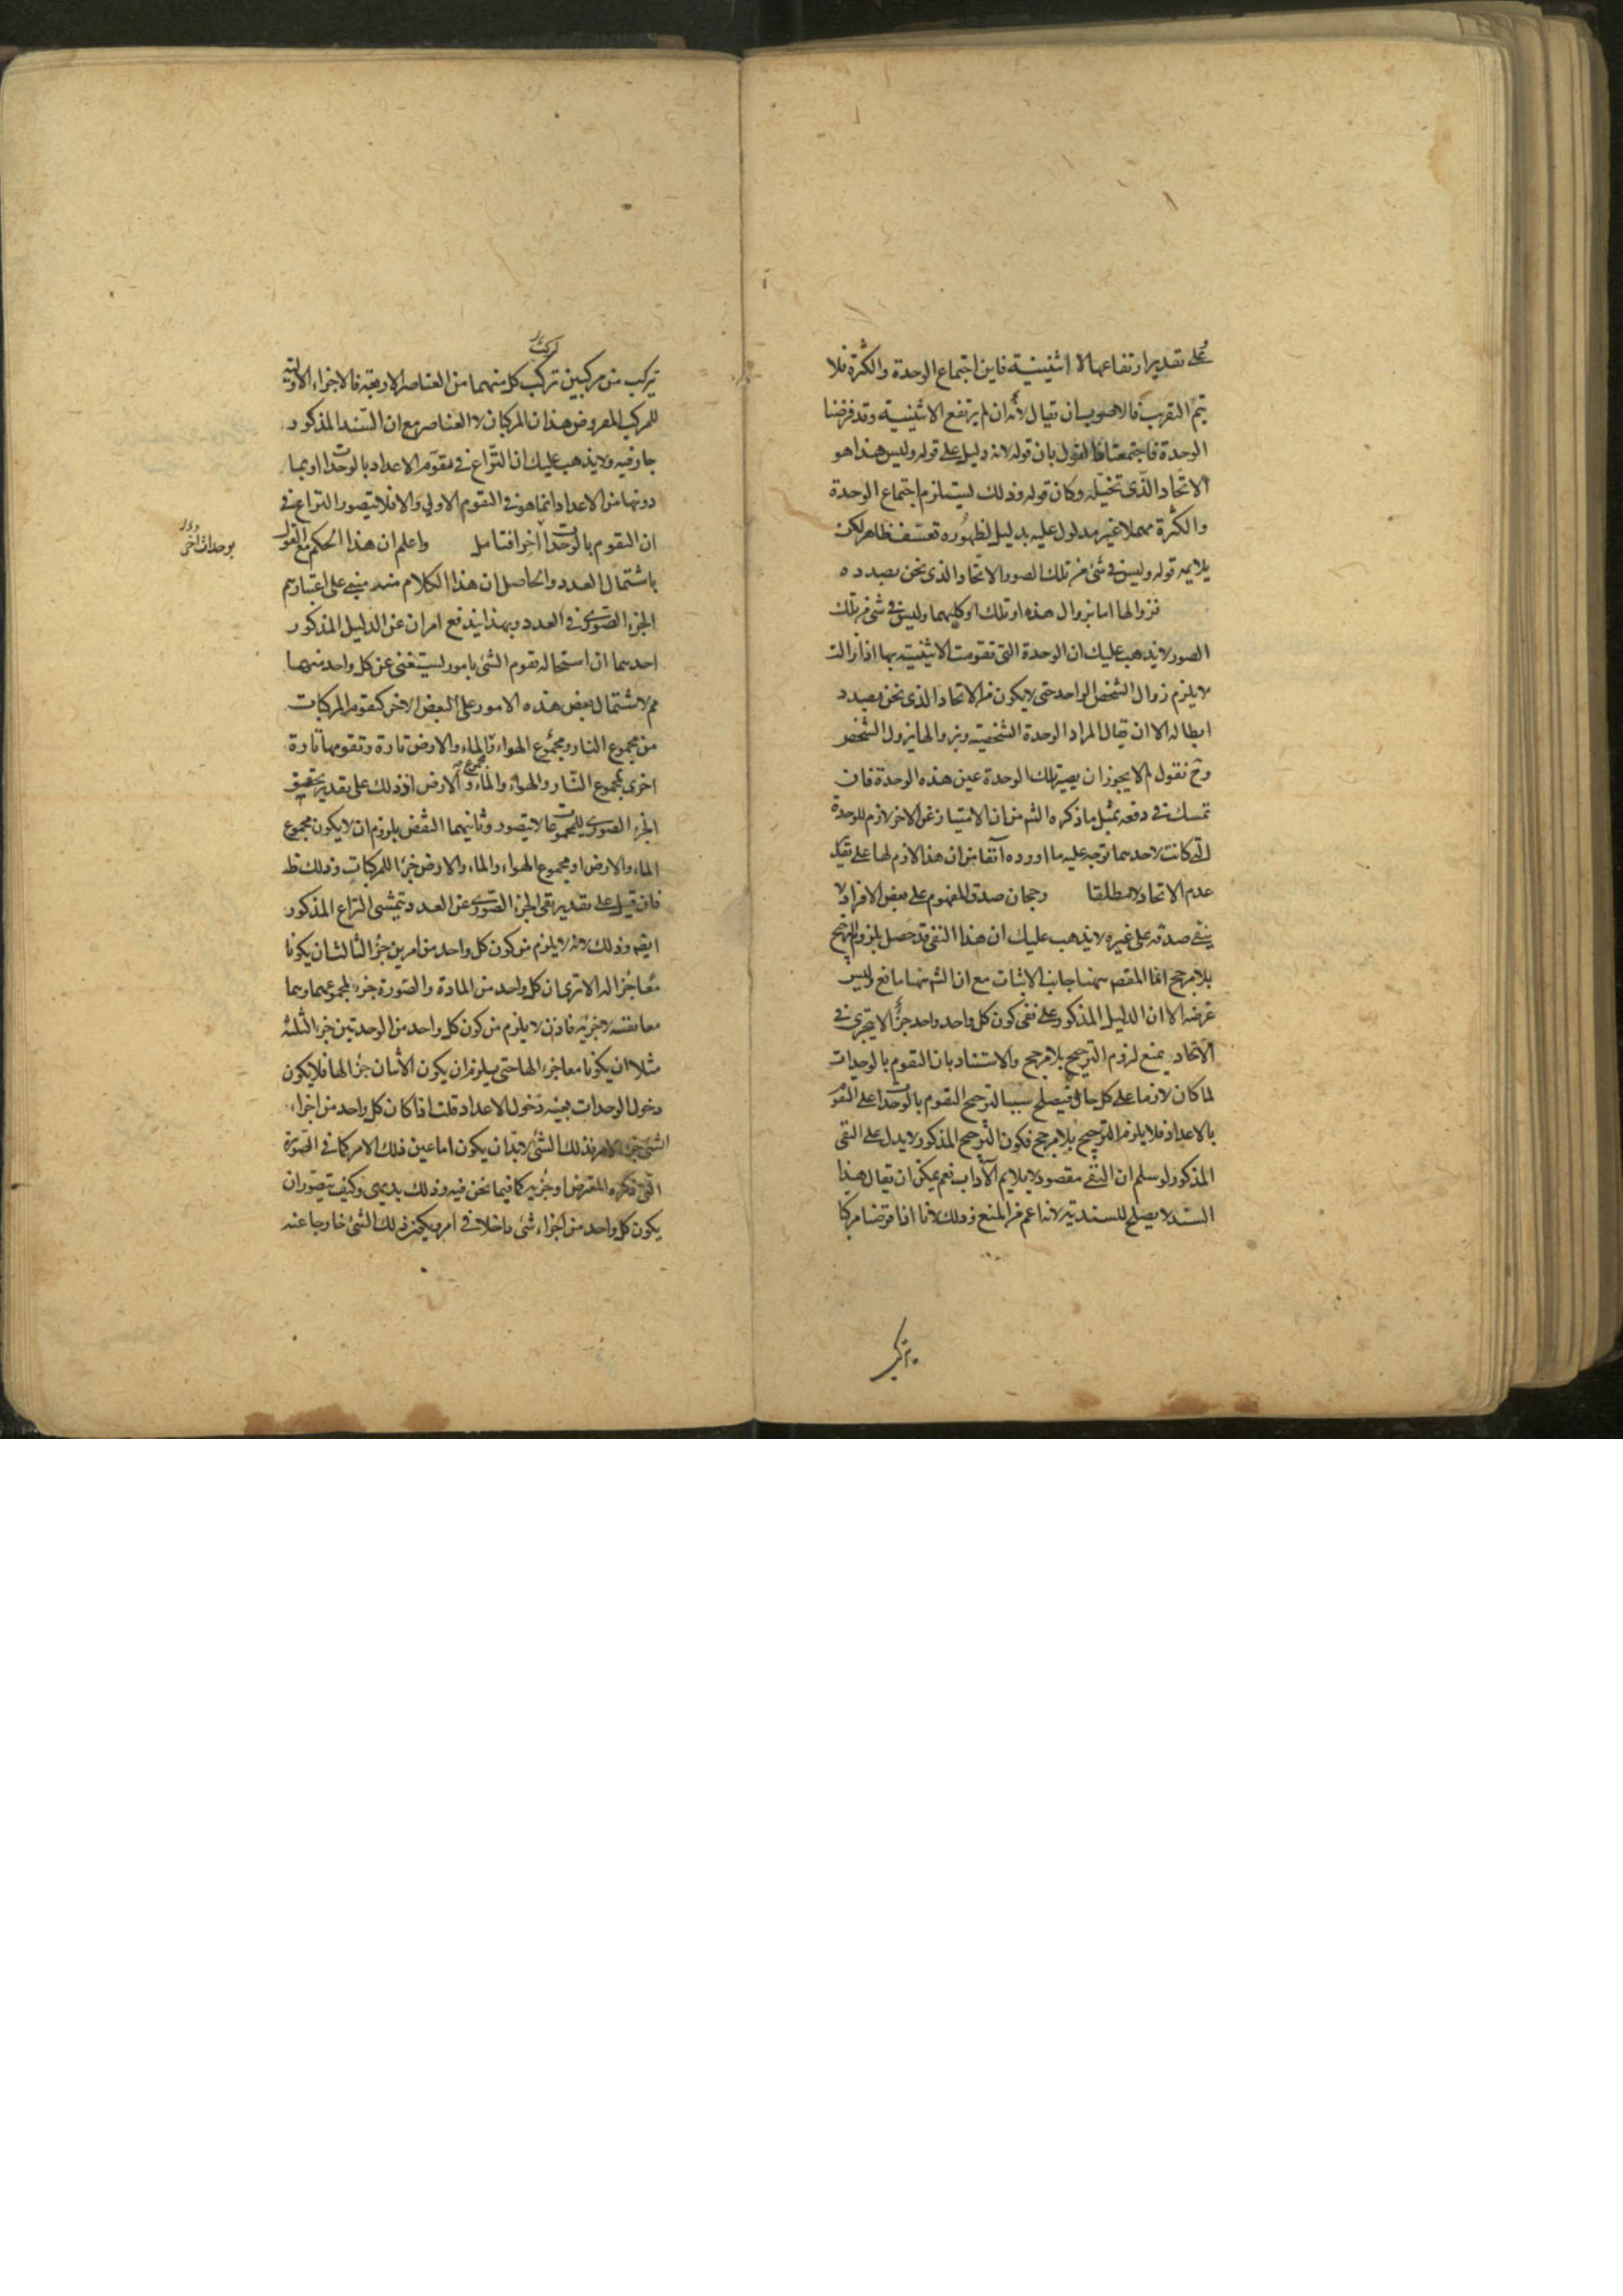 على تقدير ارتفاعها لا اثنينية فاين اجتماع الوحدة والكثرة فلا
يتم التقريب فالاصوب ان يقال لانه ان لم يرتفع الاثنينية وقد فرضنا
الوحدة فاجتمعتا فالقول بان قوله لانه دليل على قوله وليس هذا هو
الاتحاد الذى تخيله وكان قوله وذلك يستلزم اجتماع الوحدة
والكثرة مهملا غير مدلول عليه بدليل لظهوره تعسف ظاهر لكن
يلايمه قوله وليس فى شئ من تلك الصور الاتحاد الذى نحن بصدده
فزوالها اما بزوال هذه او تلك او كليهما وليس فى شئ من تلك
الصور لا يذهب عليك ان الوحدة التى تقومت الاثنينية بها اذا زالت
لا يلزم زوال الشخص الواحد حتى لا يكون من الاتحاد الذى نحن بصدد
ابطاله الا ان يقال المراد الوحدة الشخصية وبزوالها يزول الشخص
وح نقول لم لا يجوز ان يصير تلك الوحدة عين هذه الوحدة فان
تمسك فى دفعه بمثل ما ذكره الش من ان الامتياز عن الاخر لازم للوحدة
التى كانت لاحدهما توجه عليه ما اورده آنفا من ان هذا لازم لها على تقدير
عدم الاتحاد لا مطلقا رجحان صدق المفهوم على بعض الافراد لا
ينفى صدقه على غيره لا يذهب عليك ان هذا النفى قد حصل بلزوم الترجيح
بلا مرجح انما المقصد ههنا جانب الاثبات مع ان الش ههنا مانع وليس
غرضه الا ان الدليل المذكور على نفى كون كل واحد واحد جزءًا لا يجرى فى
الاتحاد يمنع لزوم الترجيح بلا مرجح والاستناد بان التقوم بالوحدات
لما كان لازما على كل حال فيصلح سببا لترجح التقوم بالوحدات على التقوم
بالاعداد فلا يلزم الترجيح بلا مرجح فكون الترجح المذكور لا يدل على النفى
المذكور لو سلم ان النفى مقصود لا يلايم الآداب نعم يمكن ان يقال هذا
السند لا يصلح للسندية لانه اعم من المنع وذلك لانا اذا فرضنا مركبا
يتركب
تركب
يتركب من مركبين تركب كل منهما من العناصر الاربعة فالاجزاء الاولية
للمركب المفروض هذان المركبان لا العناصر مع ان السند المذكور
جار فيه ولا يذهب عليك ان النزاع فى تقوم الاعداد بالوحدات او بما
دونها من الاعداد انما هو فى التقوم الاولى والا فلا يتصور النزاع فى
ان التقوم بالوحدات آخرا فتامل واعلم ان هذا الحكم مع القول
بوحدات اخر
باشتمال العدد والحاصل ان هذا الكلام منه مبنى على اعتبارهم
الجزء الصورى فى العدد وبهذا يندفع امران عن الدليل المذكور
احدهما ان استحاله تقوم الشئ بامور يستغنى عن كل واحد منها
مم لاشتمال بعض هذه الامور على البعض الاخر كتقوم المركبات
من مجموع النار ومجموع الهواء والماء والارض تارة وتقومها تارة
اخرى بمجموع النار والهواء والماء والارض اذ ذلك على تقدير تحقيق
مجموع
الجزء الصورى للمجموعات لا يتصور وثانيهما النقض بلزوم ان لا يكون مجموع
الماء والارض او مجموع الهواء والماء والارض جزءا للمركبات وذلك ظ
فان قيل على تقدير نفى الجزء الصورى عن العدد يتمشى النزاع المذكور
ايض وذلك لانه لا يلزم من كون كل واحد من امرين جزءا لثالث ان يكونا
معا جزءا له الا ترى ان كل واحد من المادة والصورة جزء لمجموعهما وهما
معا نفسه لا جزئه فاذن لا يلزم من كون كل واحد من الوحدتين جزء الثلثه
مثلا ان يكونا معا جزء الها حتى يلزم ان يكون الاثنان جزءا لها فلا يكون
دخول الوحدات بعينه دخول الاعداد قلت اذا كان كل واحد من اجزاء
الشئ جزءا لامر فذلك الشئ لا بد ان يكون اما عين ذلك الامر كما فى الصورة
التى ذكره المعترض او جزئه كما فيما نحن فيه وذلك بديهى وكيف يتصور ان
يكون كل واحد من اجزاء شئ داخلا فى امر ويكون ذلك الشئ خارجا عنه